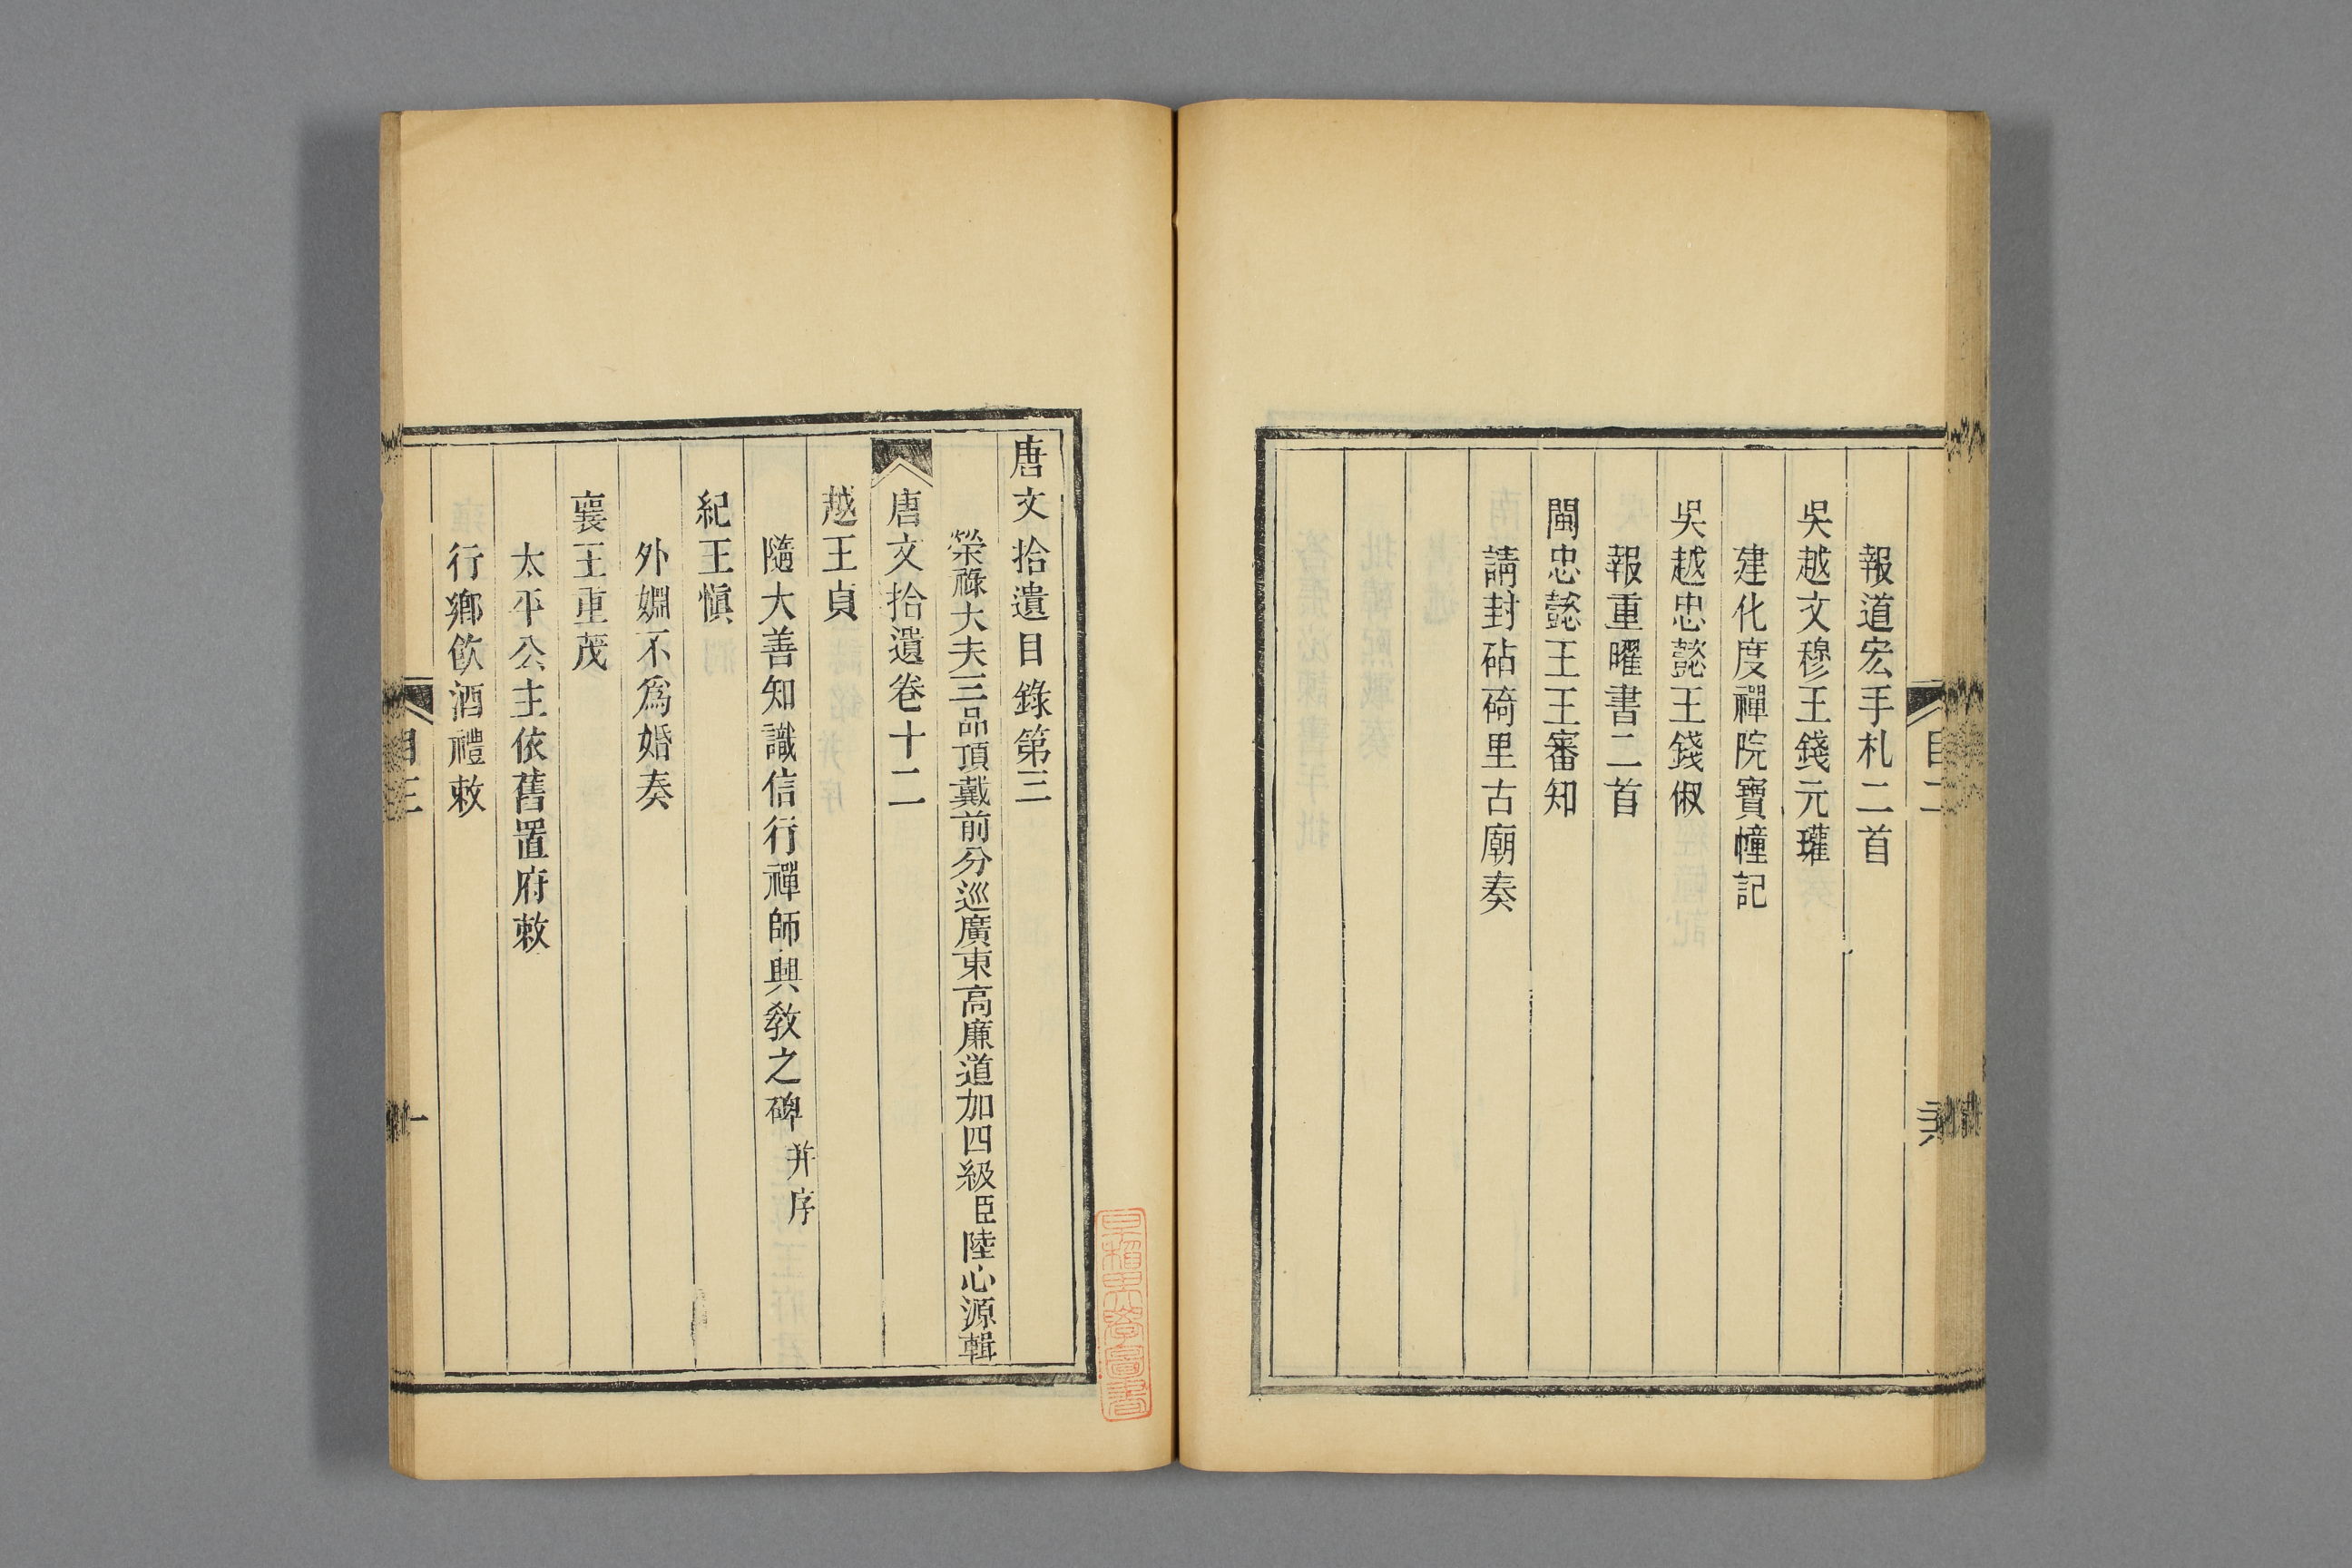 報道宏手札二首
吳越文穆王錢元瓘
建化度禪院寶幢記
吳越忠懿王錢俶
報重曜書二首
閩忠懿王王審知
請封砧碕里古廟奏
唐文拾遺目錄第三
榮祿大夫三品頂戴前分巡廣東高廉道加四級臣陸心源輯
唐文拾遺卷十二
越王貞
隨大善知識信行禪師興敎之碑并序
紀王愼
外婣不爲婚奏
襄王重茂
太平公主依舊置府敕
行鄉飮酒禮敕
目三
一
早稻田大學圖書